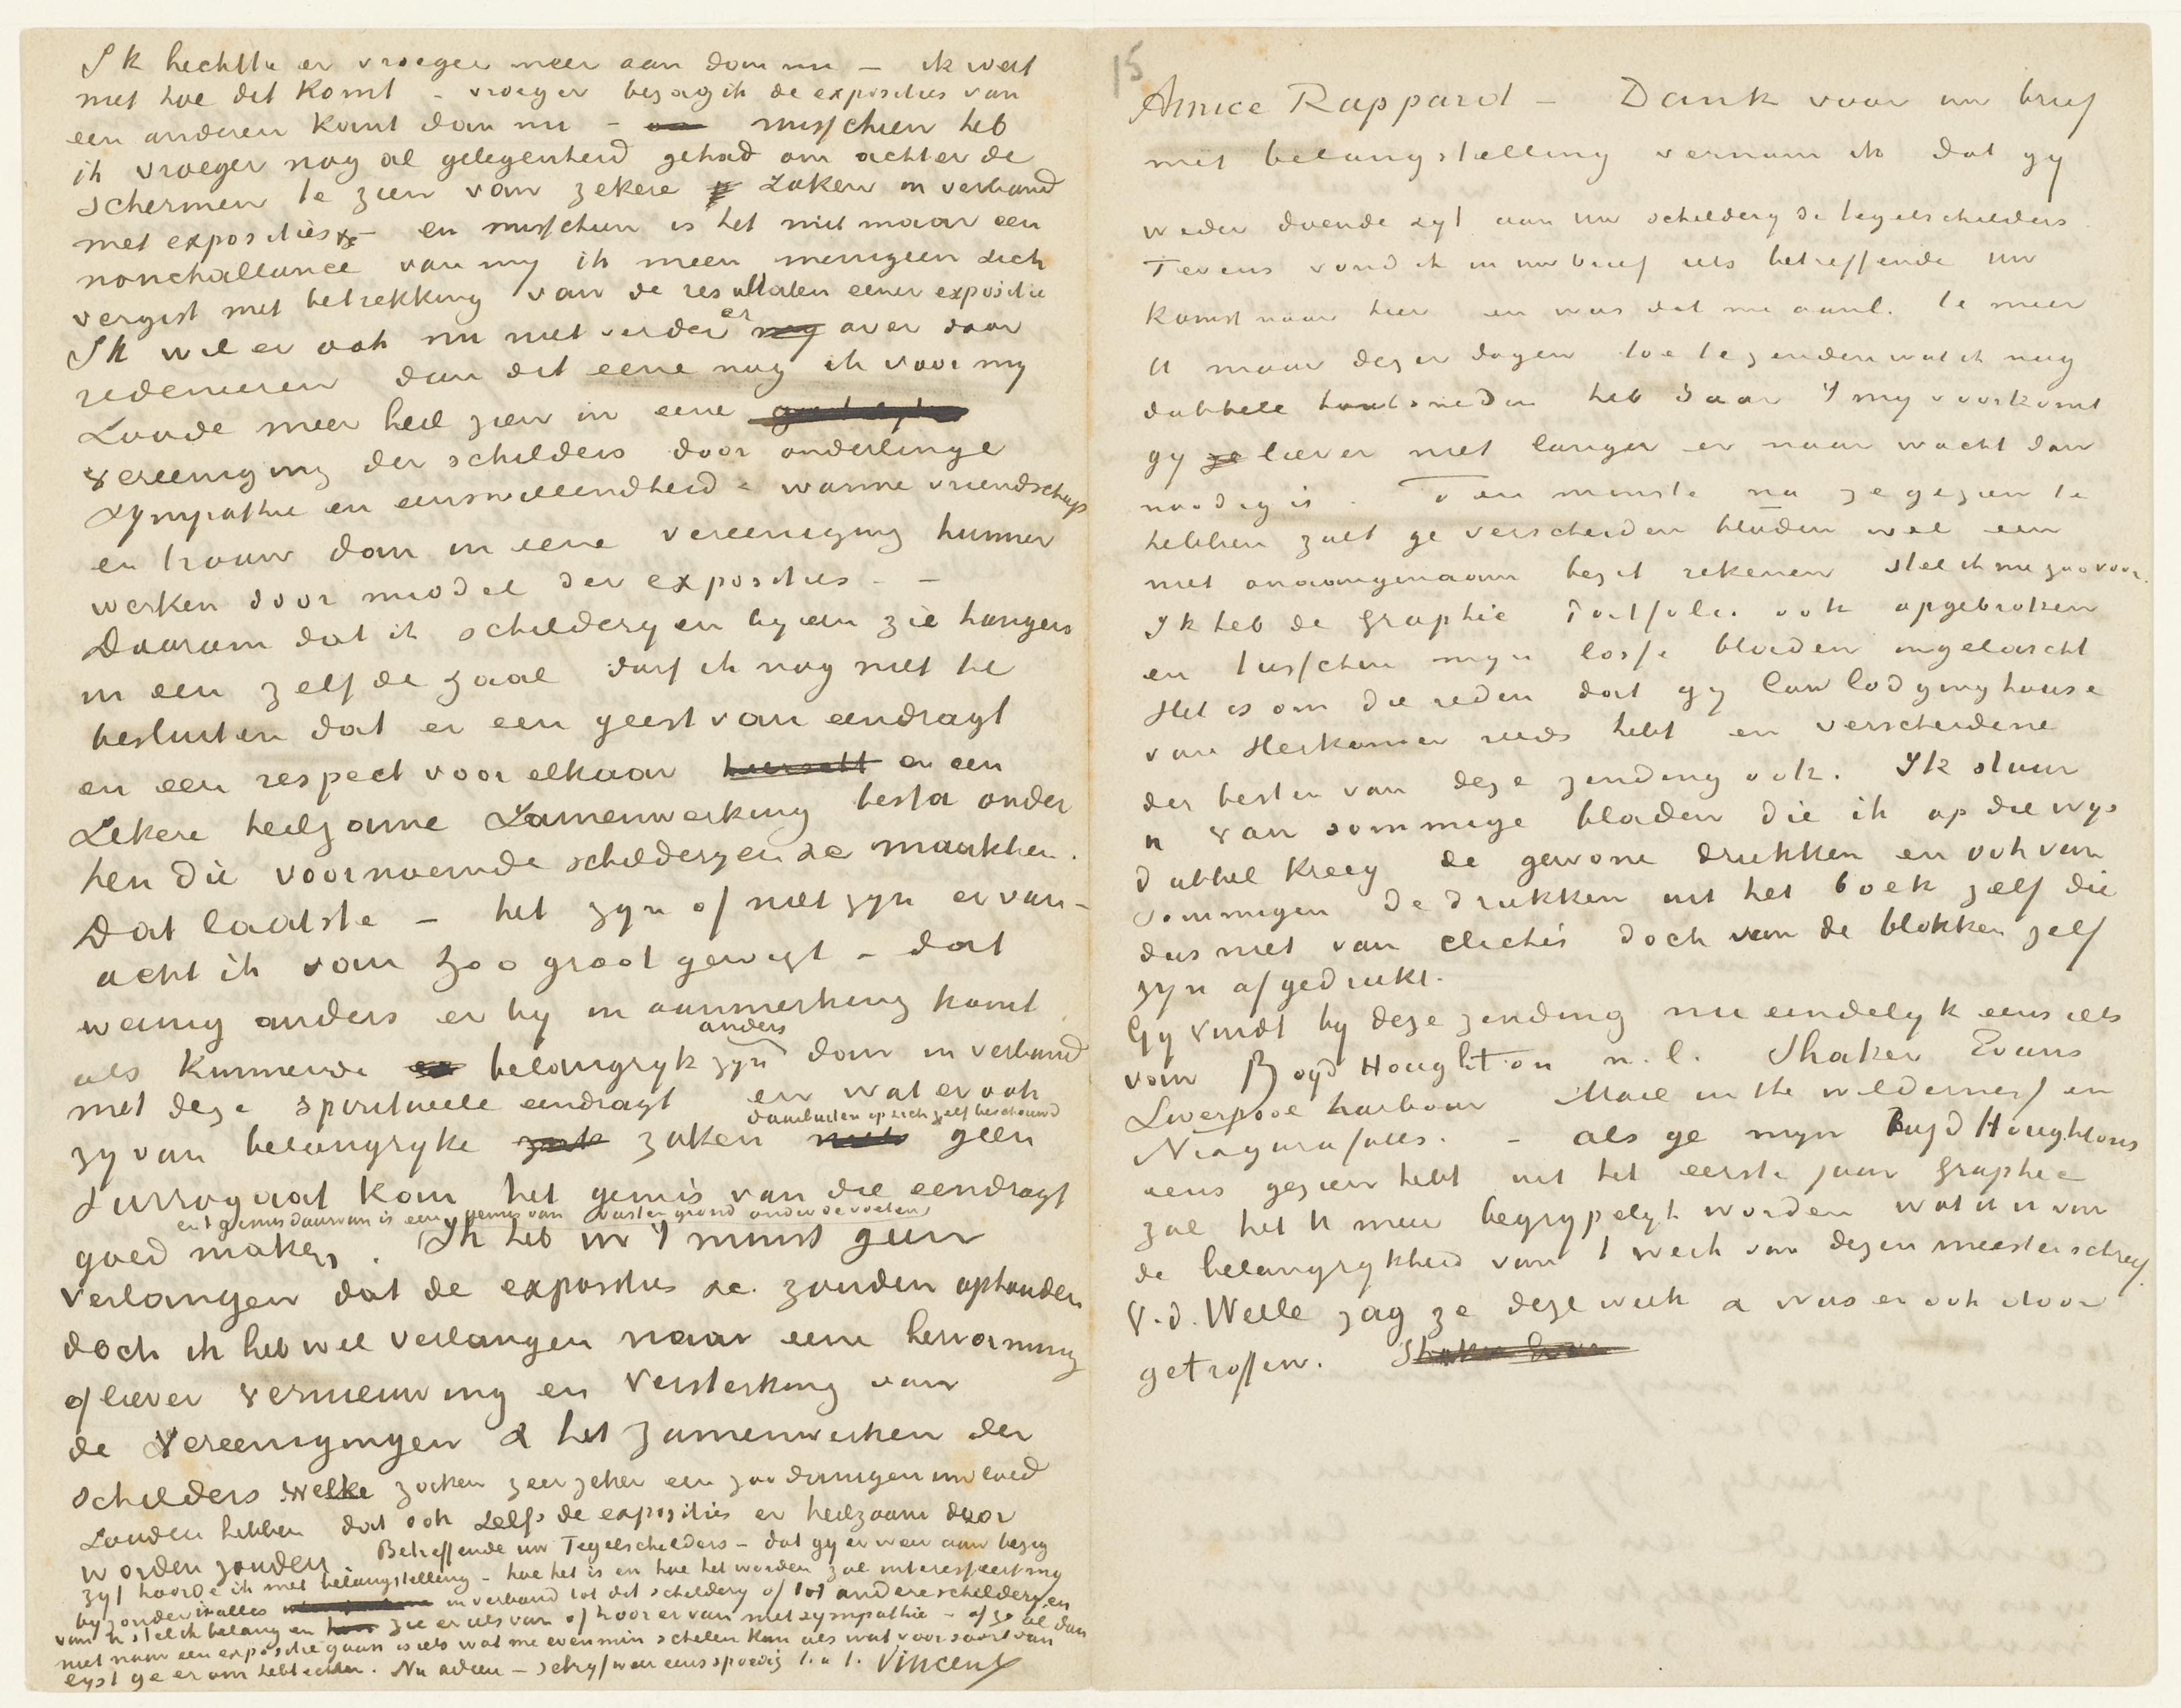 15
Amice Rappard – Dank voor uw brief
met belangstelling vernam ik dat gy
weder doende zyt aan uw schildery de tegelschilders.
Tevens vond ik in uw brief iets betreffende uw
komst naar hier en was dat me aanl. te meer
U maar dezer dagen toe te zenden wat ik nog
dubbele houtsneden heb daar 't my voorkomt
gy ze liever niet langer er naar wacht dan
noodig is. Ten minste na ze gezien te
hebben zult ge verscheiden bladen wel een
niet onaangenaam bezit rekenen stel ik me zoo voor.
Ik heb de Graphic Portfolio ook opgebroken
en tusschen myn losse bladen ingelascht
Het is om die reden dat gy Low lodginghouse
van Herkomer reeds hebt en verscheidene
der besten van deze zending ook. Ik stuur
u van sommige bladen die ik op die wys
dubbel kreeg de gewone drukken en ook van
sommigen de drukken uit het boek zelf die
dus niet van clichés doch van de blokken zelf
zyn afgedrukt.
Gy vindt by deze zending nu eindelyk eens iets
van Boyd Houghton n.l. Shaker Evans
Liverpool harbour Mail in the wilderness en
Niagara falls. – als ge myn Boyd Houghtons
eens gezien hebt uit het eerste jaar Graphic
zal het U meer begrypelyk worden wat ik u van
de belangrykheid van 't werk van dezen meester schreef.
V.d. Weele zag ze deze week & was er ook door
getroffen. Shaker Evan
Ik hechtte er vroeger meer aan dan nu – ik weet
niet hoe dit komt – vroeger bezag ik de exposities van
een anderen kant dan nu – misschien heb
ik vroeger nog al gelegenheid gehad om achter de
schermen te zien van zekere zaken in verband
met exposities &c – en misschien is het niet maar een
nonchallance van my ik meen menigeen zich
vergist met betrekking van de resultaten eener expositie
Ik wil er ook nu niet verder er over door
redeneeren dan dit eene nog ik voor my
zoude meer heil zien in eene
vereeniging der schilders door onderlinge
sympathie en eenswillendheid – warme vriendschap
en trouw dan in eene vereeniging hunner
werken door middel der exposities – –
Daarom dat ik schilderyen byeen zie hangen
in een zelfde zaal durf ik nog niet te
besluiten dat er een geest van eendragt
en een respect voor elkaar en een
zekere heilzame zamenwerking besta onder
hen die voornoemde schilderyen &c maakten.
Dat laatste – het zyn of niet zyn ervan –
acht ik van zoo groot gewigt – dat
weinig anders er by in aanmerking komt
als kunnende belangryk zyn anders dan in verband
met deze spiritueele eendragt en wat er ook
daarbuiten op zich zelf beschouwd
zy van belangryke zaken geen
surrogaat kan het gemis van die eendragt
en 't gemis daarvan is een gemis van vasten grond onder de voeten
goed maken. Ik heb in 't minst geen
verlangen dat de exposities &c. zouden ophouden
doch ik heb wel verlangen naar eene hervorming
of liever vernieuwing en versterking van
de Vereenigingen & het zamenwerken der
schilders welke zaken zeer zeker een zoodanigen invloed
zouden hebben dat ook zelfs de exposities er heilzaam door
worden zouden. Betreffende uw Tegelschilders – dat gy er weer aan bezig
zyt hoorde ik met belangstelling – hoe het is en hoe het worden zal interesseert my
byzonder in alles in verband tot dit schildery of tot andere schilderyen
van u stel ik belang en zie er iets van of hoor er van met sympathie – of ze al dan
niet naar een expositie gaan is iets wat me evenmin schelen kan als wat voor soort van
lyst ge er om hebt echter. Nu adieu – schryf weer eens spoedig t. à t. Vincent